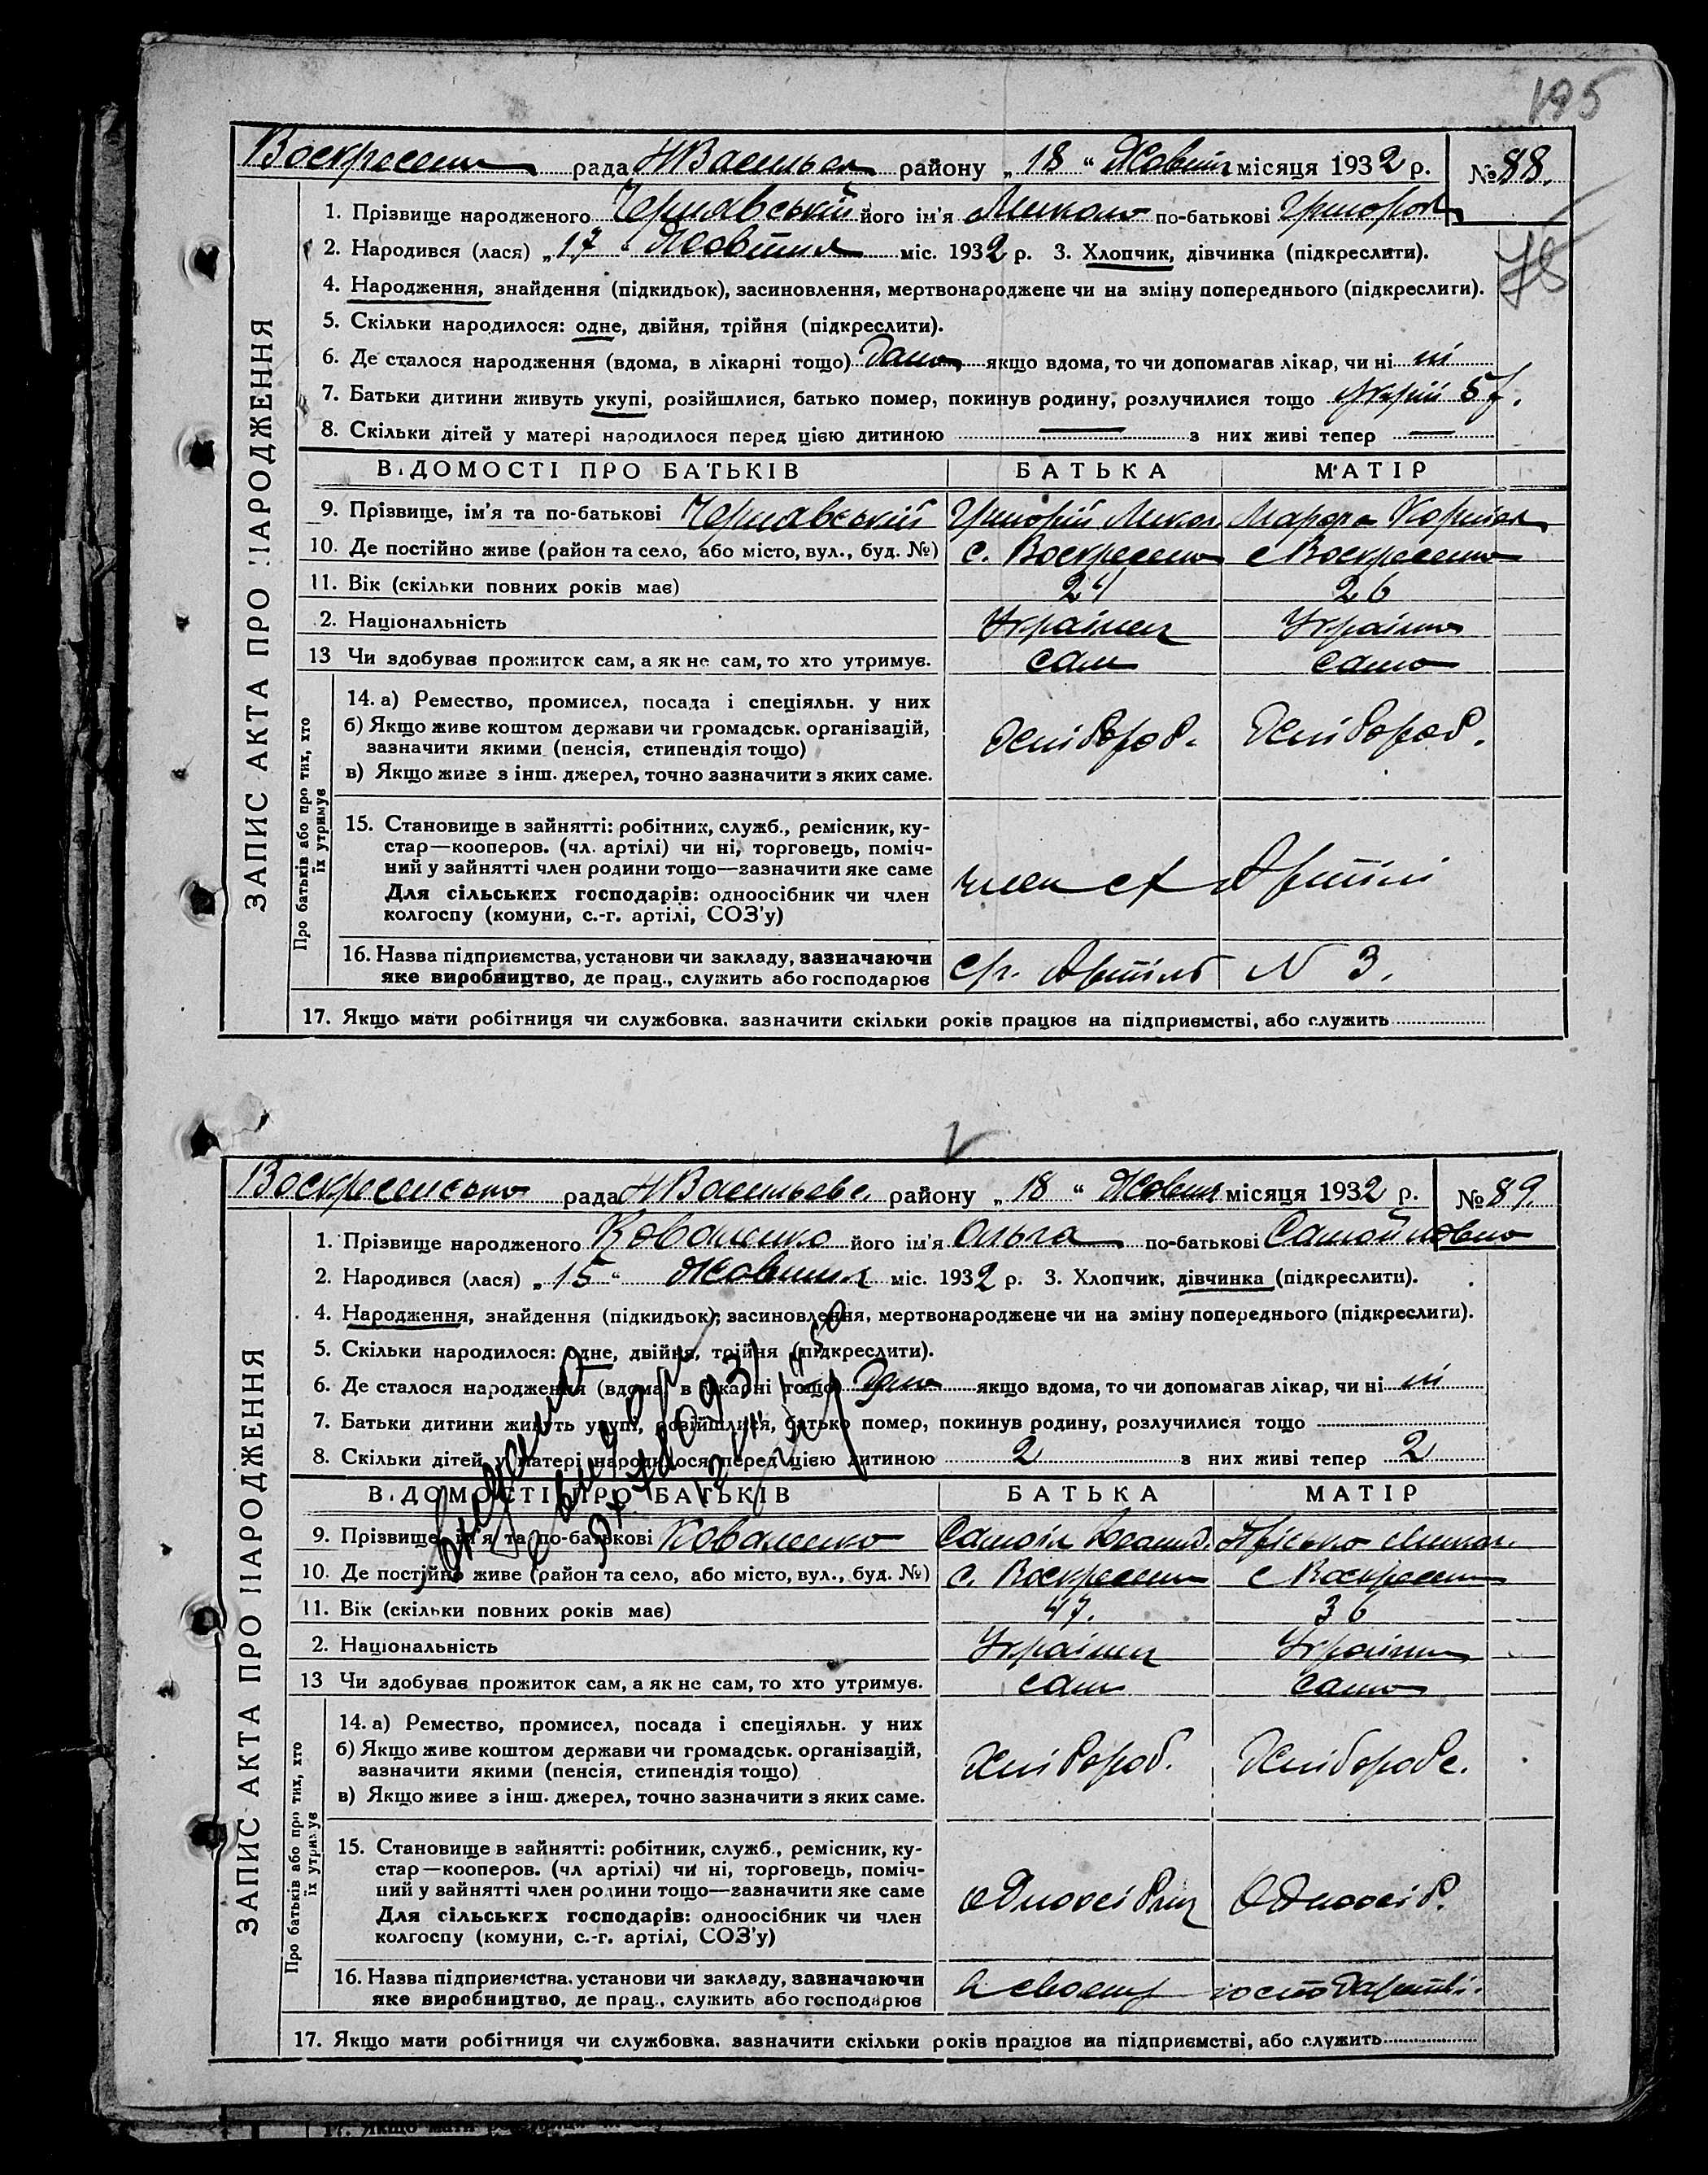 195
Воскресенс рада Н Васильев району „18“ Жовтня місяця 1932 р. № 88.
1. Прізвище народженого Чернавський його ім'я Микола по-батькові Григоров
2. Народився (лася) „17“ Жовтня міс. 1932 р. 3. Хлопчик, дівчинка (підкреслити).
78
4. Народження, знайдення (підкидьок), засиновлення, мертвонароджене чи на зміну попереднього (підкреслити).
5. Скільки народилося: одне, двійня, трійня (підкреслити).
6. Де сталося народження (вдома, в лікарні тощо) дома якщо вдома, то чи допомагав лікар, чи ні ні
7. Батьки дитини живуть укупі, розійшлися, батько помер, покинув родину, розлучилися тощо
8. Скільки дітей у матері народилося перед цією дитиною — з них живі тепер —
ВІДОМОСТІ ПРО БАТЬКІВ БАТЬКА МАТІР
9. Прізвище, ім'я та по-батькові Чернавський Григорій Микол
10. Де постійно живе (район та село, або місто, вул., буд. №) с. Воскресенка с Воскресенка
11. Вік (скільки повних років має) 24 26
2. Національність Українец Українка
13 Чи здобував прожиток сам, а як не сам, то хто утримує. сам сама
ЗАПИС АКТА ПРО НАРОДЖЕННЯ
Про батьків або про тих, хто їх утримує
14. а) Ремество, промисел, посада і спеціяльн. у них
б) Якщо живе коштом держави чи громадськ. організацій,
зазначити якими (пенсія, стипендія тощо) Хлібороб. Хлібороб.
в) Якщо живе з інш. джерел, точно зазначити з яких саме.
15. Становище в зайнятті: робітник, служб., ремісник, ку-
стар—кооперов. (чл. артілі) чи ні, торговець, поміч-
ний у зайнятті член родини тощо—зазначити яке саме член сг Артілі
Для сільських господарів: одноосібник чи член
колгоспу (комуни, с.-г. артілі, СОЗ'у)
16. Назва підприємства, установи чи закладу, зазначаючи
яке виробництво, де прац., служить або господарює Сг. Артіль N 3.
17. Якщо мати робітниця чи службовка, зазначити скільки років працює на підприємстві, або служить
Воскресенська рада Н Васильевс. району „18“ Жовтня місяця 1932 р. № 89.
1. Прізвище народженого Коваленко його ім'я Ольга по-батькові Самойловна
2. Народився (лася) „15“ Жовтня міс. 1932 р. 3. Хлопчик, дівчинка (підкреслити).
4. Народження, знайдення (підкидьок), засиновлення, мертвонароджене чи на зміну попереднього (підкреслити).
5. Скільки народилося: одне, двійня, трійня (підкреслити).
6. Де сталося народження (вдома, в лікарні тощо) дома якщо вдома, то чи допомагав лікар, чи ні ні
7. Батьки дитини живуть укупі, розійшлися, батько помер, покинув родину, розлучилися тощо
8. Скільки дітей у матері народилося перед цією дитиною 2 з них живі тепер 2
ВІДОМОСТІ ПРО БАТЬКІВ БАТЬКА МАТІР
9. Прізвище, ім'я та по-батькові Коваленко Самоіл
10. Де постійно живе (район та село, або місто, вул., буд. №) с. Воскресенка с Воскресенка
11. Вік (скільки повних років має) 47. 36
2. Національність Українец Українка
13 Чи здобував прожиток сам, а як не сам, то хто утримує. сам сама
ЗАПИС АКТА ПРО НАРОДЖЕННЯ
Про батьків або про тих, хто їх утримує
14. а) Ремество, промисел, посада і спеціяльн. у них
б) Якщо живе коштом держави чи громадськ. організацій,
зазначити якими (пенсія, стипендія тощо) Хлібороб. Хлібороб.
в) Якщо живе з інш. джерел, точно зазначити з яких саме.
15. Становище в зайнятті: робітник, служб., ремісник, ку-
стар—кооперов. (чл артілі) чи ні, торговець, поміч-
ний у зайнятті член родини тощо—зазначити яке саме Одноосібник Одноосіб.
Для сільських господарів: одноосібник чи член
колгоспу (комуни, с.-г. артілі, СОЗ'у)
16. Назва підприємства, установи чи закладу, зазначаючи
яке виробництво, де прац., служить або господарює в своему господарстві.
17. Якщо мати робітниця чи службовка, зазначити скільки років працює на підприємстві, або служить